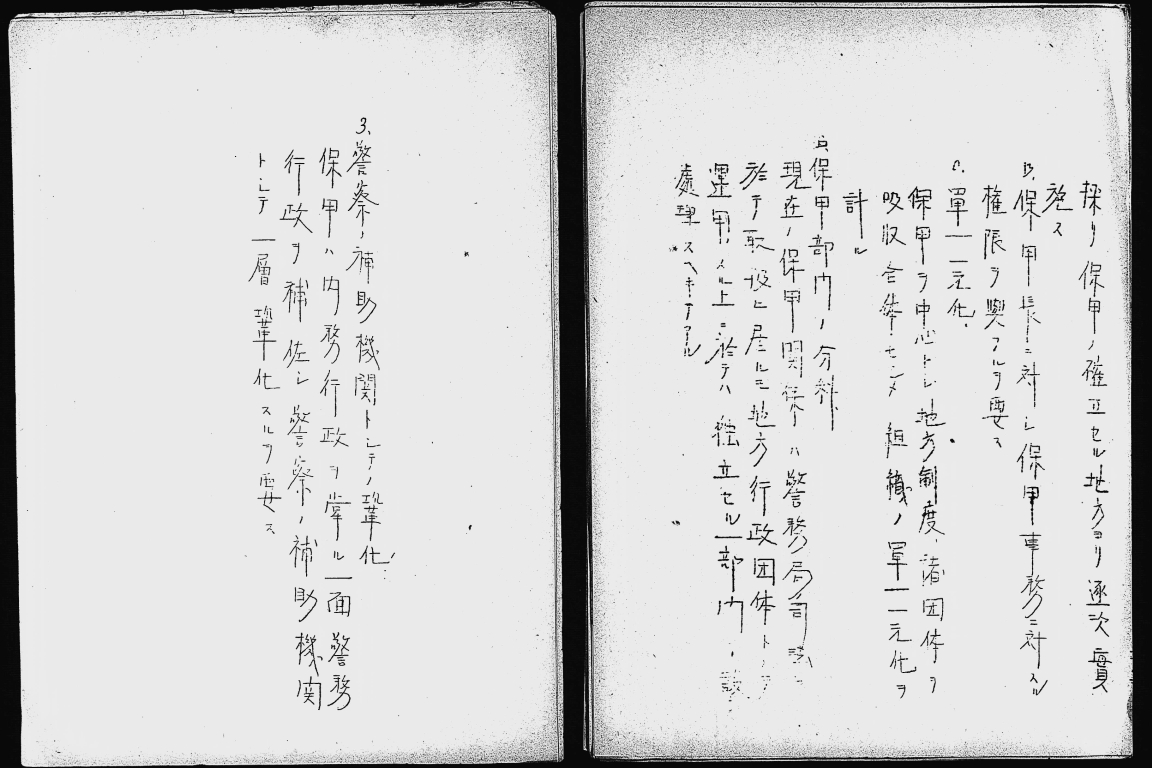 採リ保甲ノ確立セル地方ヨリ逐次實
施ス
B.保甲長ニ対シ保甲事務ニ対スル
権限ヲ與フルヲ要ス
C.單一一元化.
保甲ヲ中心トシ地方制度、諸団体ヲ
吸収合体セシメ組織ノ單一一元化ヲ
計ル
D.保甲部門ノ分科
現在ノ保甲関係ハ警務局司法
於テ取扱ヒ居ルモ地方行政団体トノ
運用ノ上ニ於テハ独立セル一部門
處理スヘキテアル
3.警察ノ補助機関トシテノ鞏化
保甲ハ内務行政ヲ掌ル一面警務
行政ヲ補佐シ警察ノ補助機関
トシテ一層鞏化スルヲ要ス